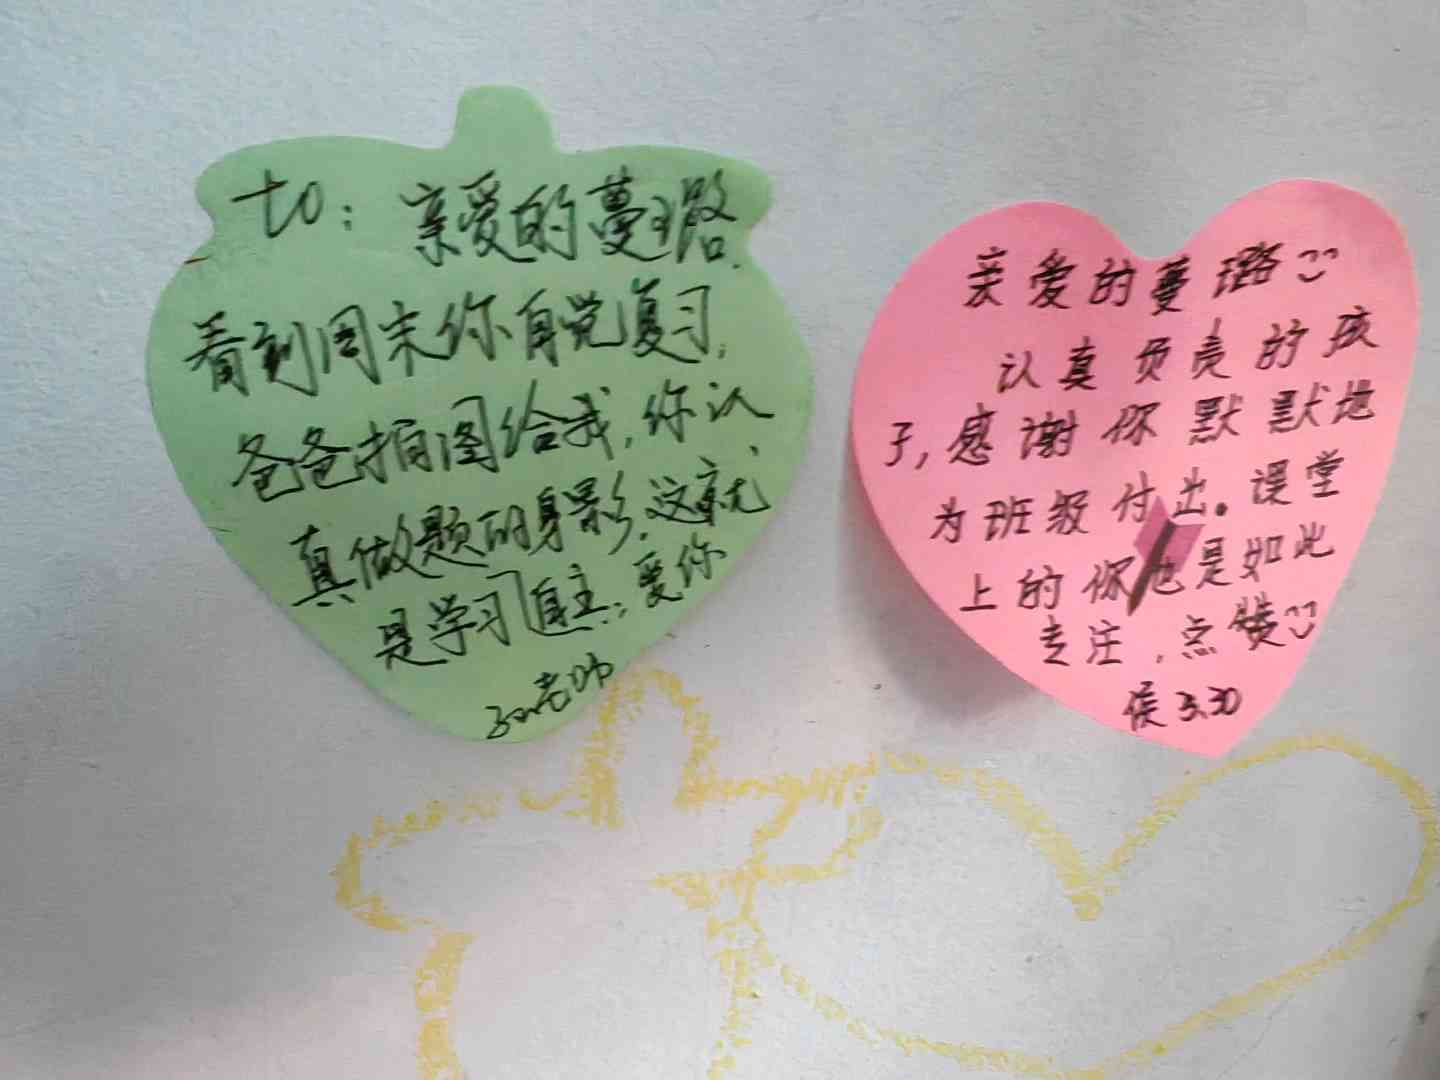 to：亲爱的蔓璐.
看到周末你自觉复习，
爸爸拍图给我，你认
真做题的身影.这就
是学习自主.爱你
老师
亲爱的蔓璐
认真负责的孩
子，感谢你默默地
为班级付出。课堂
上的你也是如此
专注，点赞
侯 3.30